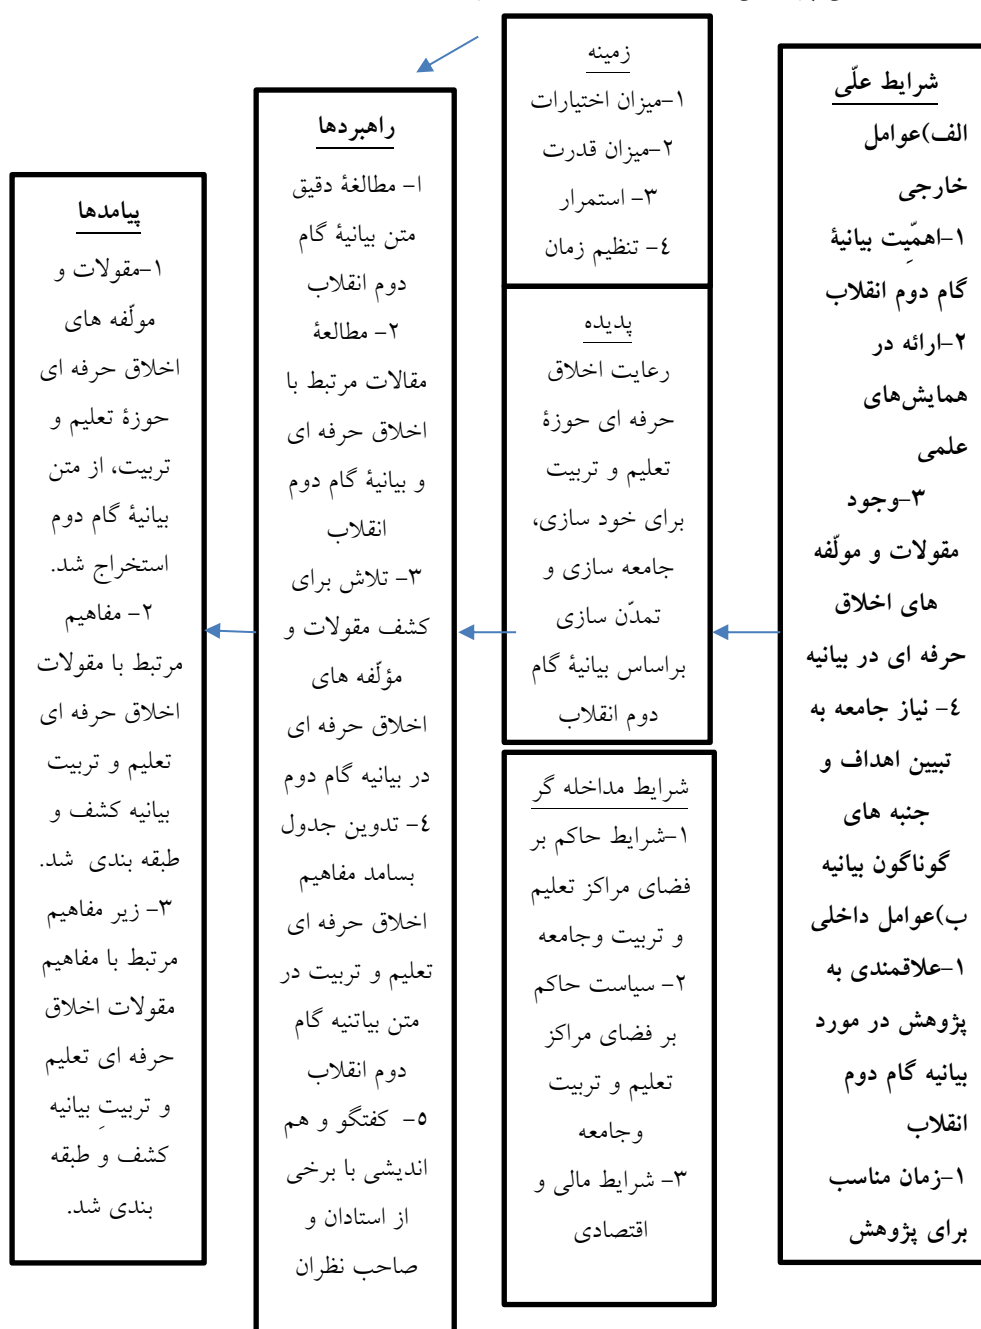 شرایط علّی
الف)عوامل
خارجی
۱-اهمّیتِ بیانیۀ
گام دوم انقلاب
۲-ارائه در
همایش‌های
علمی
۳-وجود
مقولات و مولّفه
های اخلاق
حرفه ای در بیانیه
٤- نیاز جامعه به
تبیین اهداف و
جنبه های
گوناگون بیانیه
ب)عوامل داخلی
۱-علاقمندی به
پژوهش در مورد
بیانیه گام دوم
انقلاب
۱-زمان مناسب
برای پژوهش
زمینه
۱-میزان اختیارات
۲-میزان قدرت
۳- استمرار
٤- تنظیم زمان
پدیده
رعایت اخلاق
حرفه ای حوزۀ
تعلیم و تربیت
برای خود سازی،
جامعه سازی و
تمدّن سازی
براساس بیانیۀ گام
دوم انقلاب
شرایط مداخله گر
۱-شرایط حاکم بر
فضای مراکز تعلیم
و تربیت وجامعه
۲- سیاست حاکم
بر فضای مراکز
تعلیم و تربیت
وجامعه
۳- شرایط مالی و
اقتصادی
راهبردها
ا- مطالغۀ دقیق
متن بیانیۀ گام
دوم انقلاب
۲- مطالعۀ
مقالات مرتبط با
اخلاق حرفه ای
و بیانیۀ گام دوم
انقلاب
۳- تلاش برای
کشف مقولات و
مؤلّفه های
اخلاق حرفه ای
در بیانیه گام دوم
٤- تدوین جدول
بسامد مفاهیم
اخلاق حرفه ای
تعلیم و تربیت در
متن بیاتنیه گام
دوم انقلاب
٥- کفتگو و هم
اندیشی با برخی
از استادان و
صاحب نظران
پیامدها
۱-مقولات و
مولّفه های
اخلاق حرفه ای
حوزۀ تعلیم و
تربیت، از متن
بیانیۀ گام دوم
استخراج شد.
۲- مفاهیم
مرتبط با مقولات
اخلاق حرفه ای
تعلیم و تربیت
بیانیه کشف و
طبقه بندی شد.
۳- زیر مفاهیم
مرتبط با مفاهیم
مقولات اخلاق
حرفه ای تعلیم
و تربیتِ بیانیه
کشف و طبقه
بندی شد.